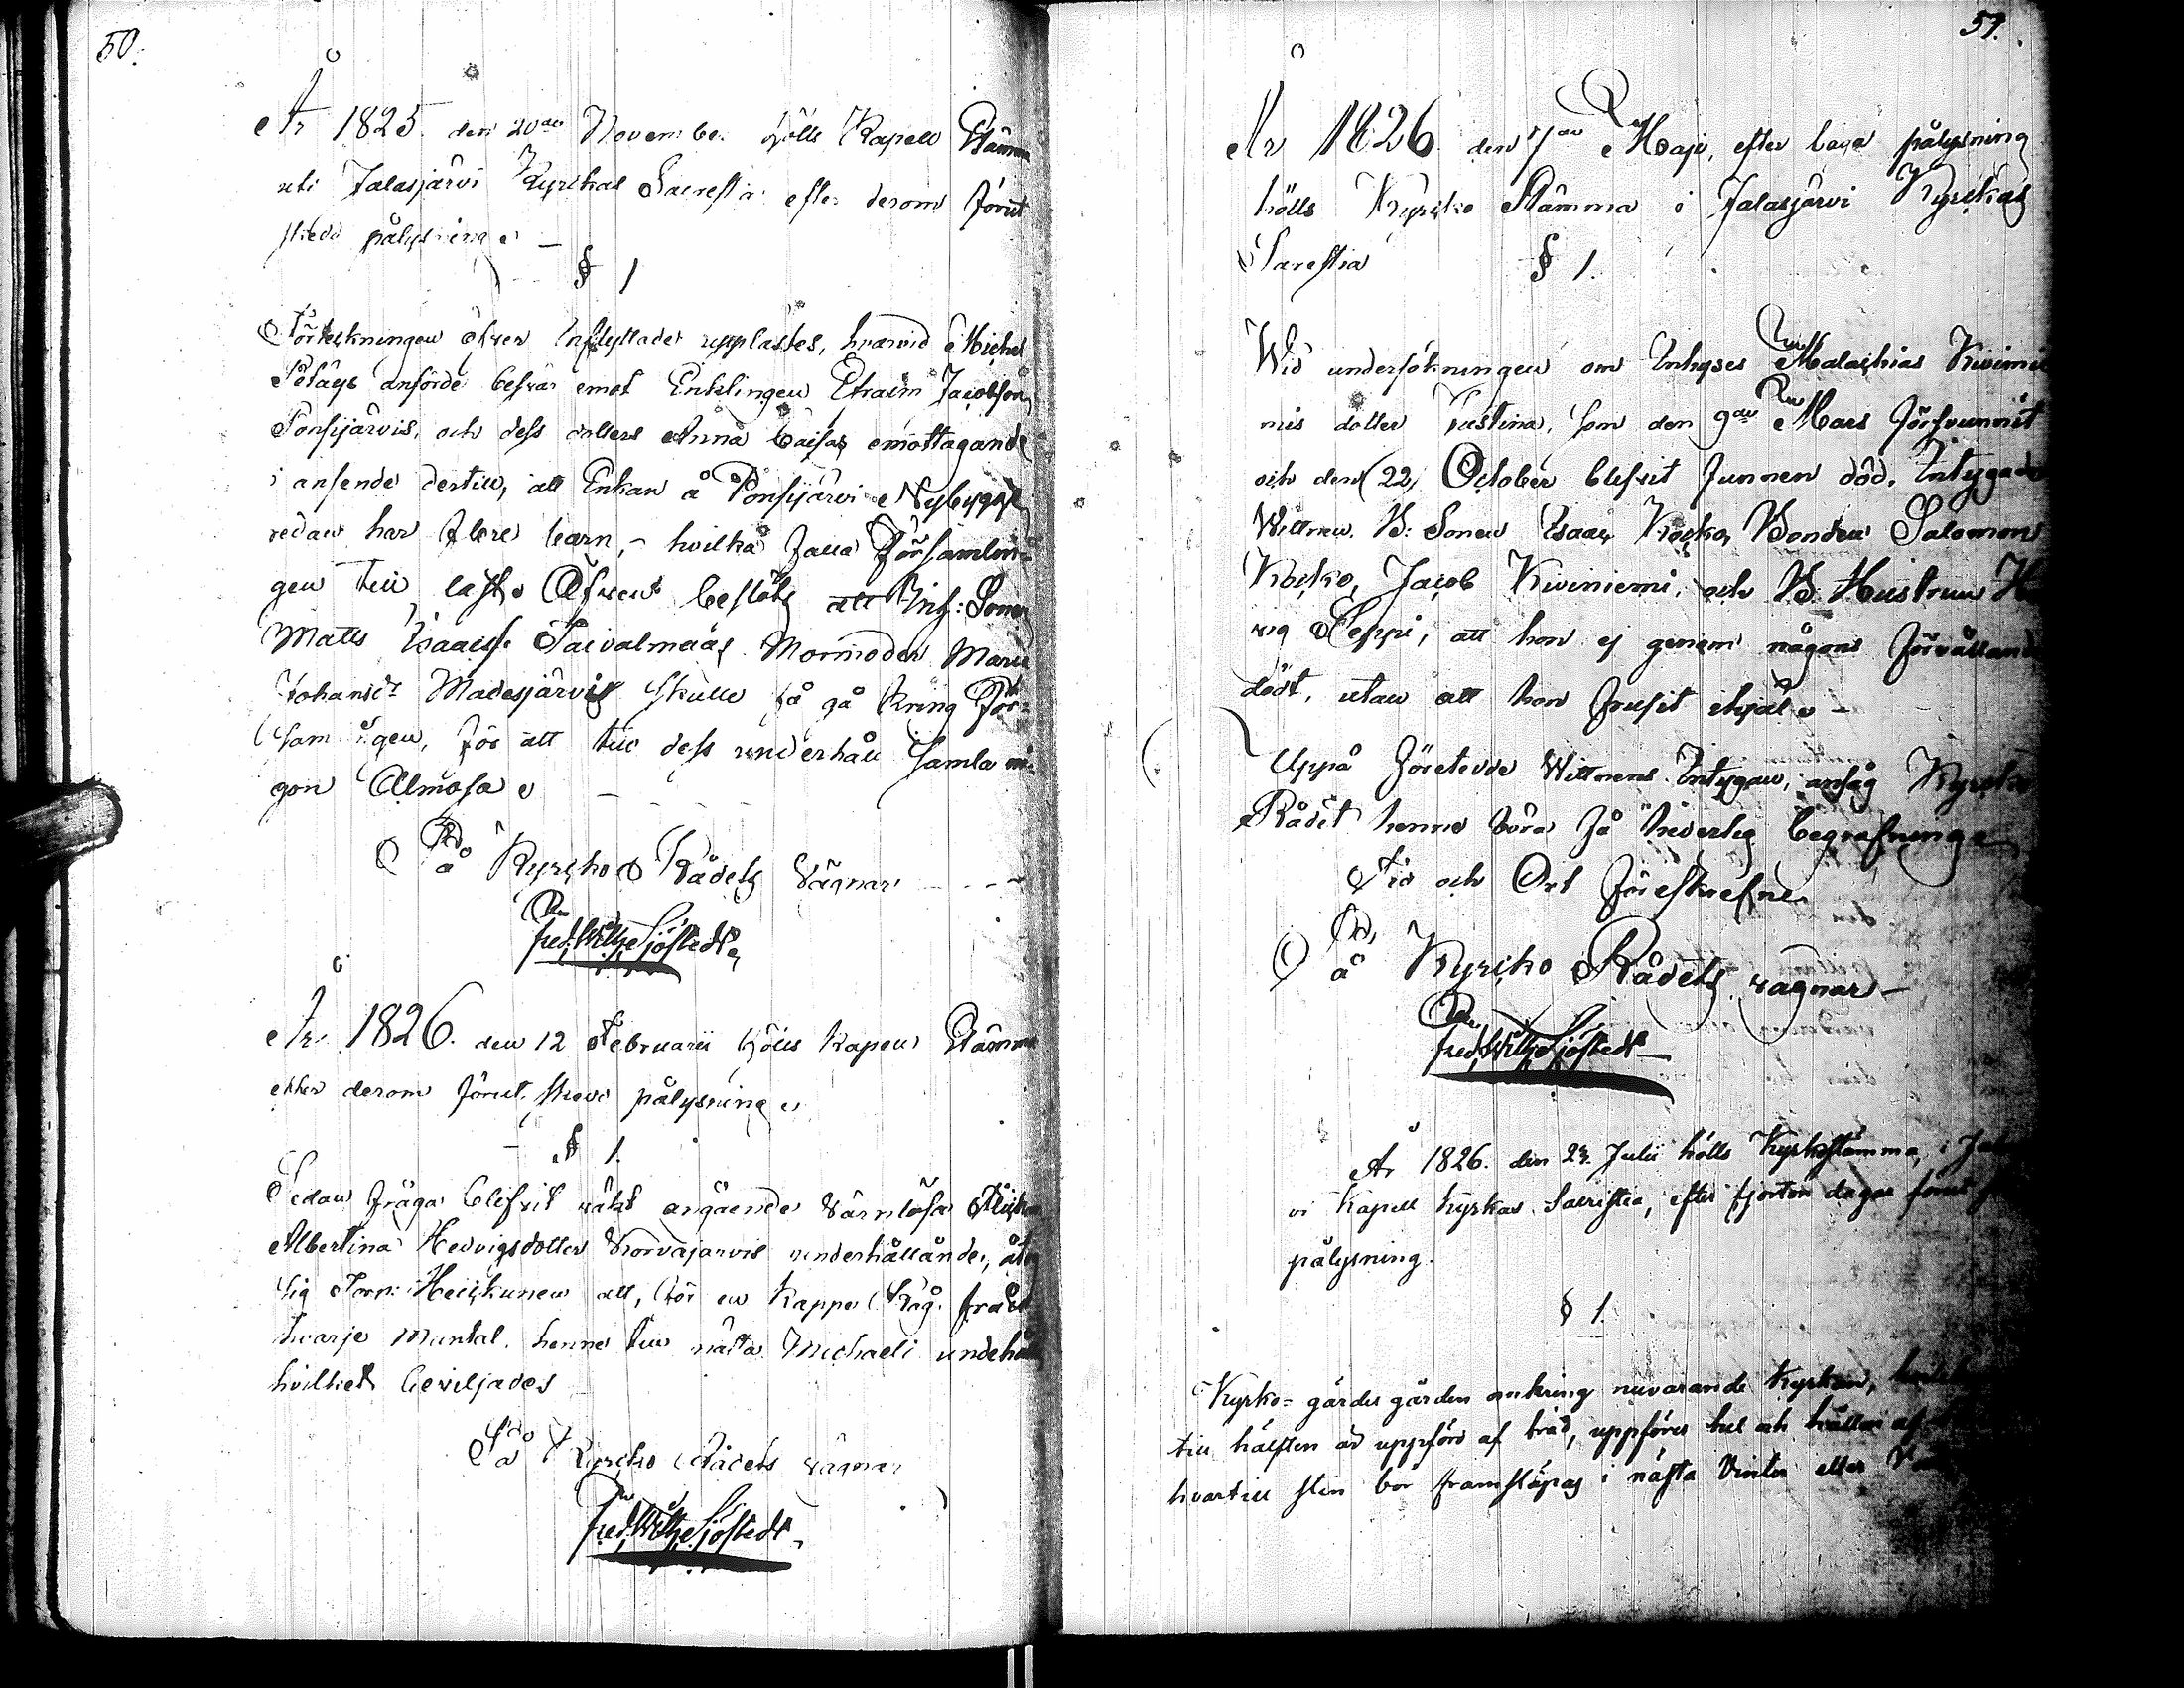 50.
År 1825. den 20de November hölls Kapell Stämma
uti Jalasjärvi Kyrckas Sacrestia efter derom förut
skedd pålysning.
§ 1
Förteckningen öfver Inflyttade upplästes, hvarvid Michel
anförde besvär emot Enklingen Efraim Jacobson
Ponsijärvis, och dess dotters Anna Caisas emottagande
i anseende dertill, att Enkan å Ponsijärvi Nybygge
redan har flere barn, hvilka falla Församlin-
gen till last. Äfven beslöts att Inh: Sonen
Matts Isaacss. Saivalmaas Mormoder Maria
Johansdr Madesjärvi skulle få gå kring För-
samlingen, för att till dess underhåll samla nå-
gon Almosa
På Kyrcko Rådets vägnar
Fred. Wilh. Sjöstedt
År 1826. den 12 Februarii hölls Kapell Stämma
efter derom förut skedd pålysning
§ 1.
Sedan fråga blifvit väckt angående värnlösa Flickan
Albertina Hedvigsdotter Korvajärvis underhållande, åtog
sig Torp: Heickunen att, för en Kappe Råg från
hvarje Mantal, henne till nästa Michaeli underhålla
hvilket beviljades
På Kyrcko Rådets vägnar
Fred. Wilh. Sjöstedt
51.
År 1826. den 7de Maji, efter laga pålysning
hölls Kyrcko Stämma i Jalasjärvi Kyrckas
Sacrestia
§ 1.
Wid undersökningen om Inhyses Malachias Kivinie-
mis dotter Justina, som den 9de Mars försvunnit
och den 22 October blifvit funnen död. Intygade
Wittnen. B: Sonen Isaac Kocko, Bonden Salomon
Kocko, Jacob Kiviniemi, och B. Hustrun
Seppi, att hon ej genom någons förvållande
dödt, utan att hon frusit ihjäl
Uppå företedde Wittnens Intygan, ansåg Kyrcko
Rådet henne böra få hederlig begrafning
Tid och Ort föreskrefne
På Kyrcko Rådets vägnar
Fred. Wilh. Sjöstedt
År 1826. den 23. Julii hölls Kyrkostämma, i
vi Kapell kyrkas Sacristia, efter fjorton dagar förut
pålysning.
§ 1.
Kyrko-gårds gården omkring nuvarande Kyrkan,
till hälften är uppförd af träd, uppföres hel och hållen af
hvartill sten bör framsläpas i nästa Vinter eller